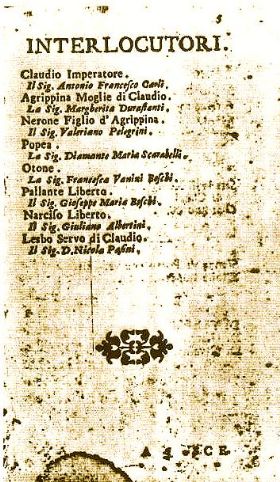 5
INTERLOCUTORI.
Claudio Imperatore.
Il Sig. Antonio Francesco Carli.
Agrippina Moglie di Claudio.
La Sig. Margherita Durastanti.
Nerone Figlio d'Agrippina.
Il Sig. Valeriano Pelegrini.
Popea.
La Sig. Diamante Maria Scarabelli.
Otone.
La Sig. Francesca Vanini Boschi.
Pallante Liberto.
Il Sig. Gioseppe Maria Boschi.
Narciso Liberto.
Il Sig. Giuliano Albertini.
Lesbo Servo di Claudio.
Il Sig. D. Nicola Pasini.
A SCE